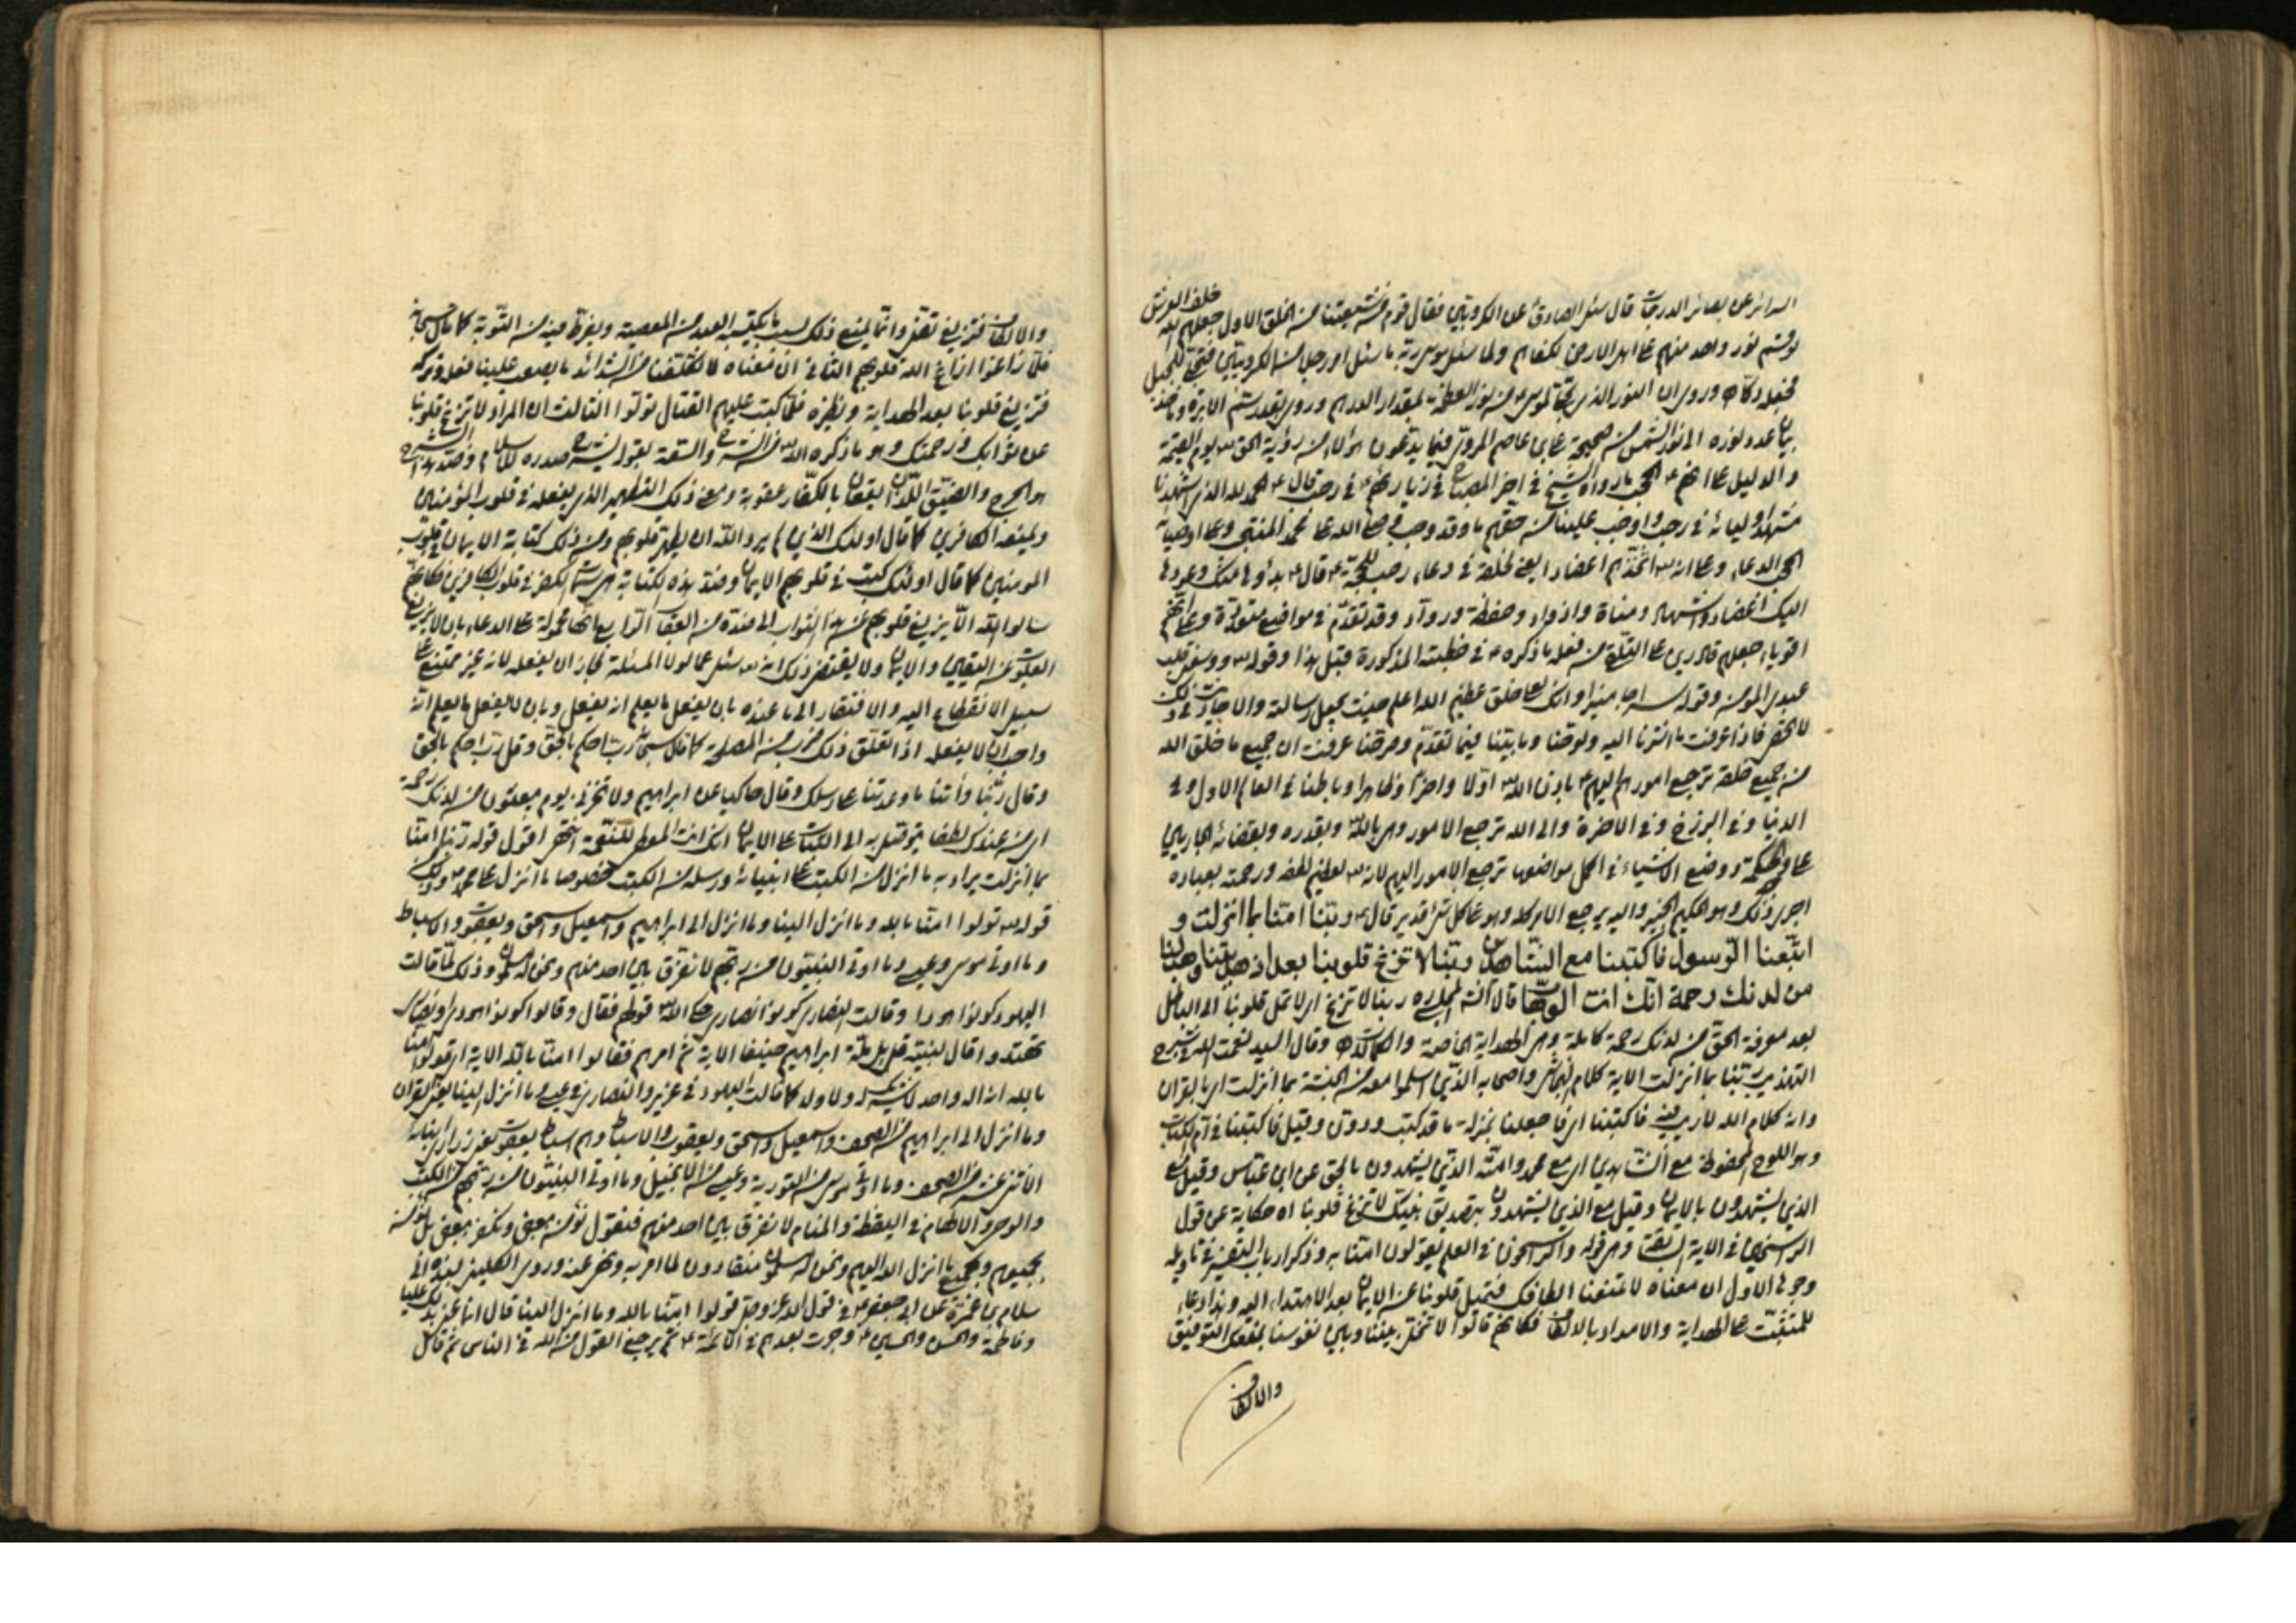 السرائر عن بصائر الدرجات قال سئل الصادق ع عن الكروبيين فقال قوم من شيعتنا من الخلق الاول جعلهم الله خلف العرش
لو قسم نور واحد منهم على اهل الارض لكفاهم ولما سئل موسى ربه ما سئل امر رجلا من الكروبيين فتجلى للجبل
فجعله دكا وروى ان النور الذي تجلى لموسى ع من نور العظمة بمقدار الدرهم وروى بقدر سم الابرة
والدليل على انهم الحجب ما رواه الشيخ في اخر المصباح في زيارتهم ع في رجب قال ع الحمد لله الذي اشهدنا
مشهد اوليائه في رجب واوجب علينا من حقهم ما قد وجب وصلى الله على محمد المنتجب وعلى اوصيائه
الحجب الدعاء وعلى انه اتخذهم اعضادا يعني لخلقه في دعاء رجب للحجة ع قال ع بدؤها منك وعودها
اليك اعضاد واشهاد ومناة واذواد وحفظة ورواد وقد تقدم في مواضع متعددة وعلى انهم
اقوياء جعلهم قادرين على من فعله ما ذكره ع في خطبته المذكورة قبل هذا وقوله ووسعني قلب
عبدي المؤمن وقوله سراجا منيرا وانك لعلى خلق عظيم الله اعلم حيث يجعل رسالته والاحاديث في ذلك
لا تحصى فاذا عرفت ما اشرنا اليه ولوحنا وما بينا فيما تقدم وصرحنا عرفت ان جميع ما خلق الله
من جميع خلقه ترجع امورهم اليهم ع باذن الله اولا واخرا وظاهرا وباطنا في العالم الاول وفي
الدنيا وفي البرزخ وفي الاخرة والى الله ترجع الامور وهي بالله وبقدره وبقضائه الجاريين
على الحكمة ووضع الاشياء في اكمل مواضعها ترجع الامور اليهم لانه لعظيم لطفه ورحمته بعباده
اجرى ذلك وهو الحكيم الخبير واليه يرجع الامر كله وهو على كل شيء قدير قال ع ربنا امنا بما انزلت و
اتبعنا الرسول فاكتبنا مع الشاهدين ربنا لا تزغ قلوبنا بعد اذ هديتنا وهب لنا
من لدنك رحمة انك انت الوهاب قال الشارح المجلسي ره ربنا لا تزغ اي لا تمل قلوبنا الى الباطل
بعد معرفة الحق من لدنك رحمة كاملة وهي الهداية الخاصة والكمالات وقال السيد نعمت الله في شرح
التهذيب ربنا بما انزلت الاية كلام النجاشي واصحابه الذين اسلموا معه من الحبشة بما انزلت اي بالقران
وانه كلام الله لا ريب فيه فاكتبنا اي فاجعلنا بمنزلة ما قد كتب ودون وقيل فاكتبنا في ام الكتاب
وهو اللوح المحفوظ مع الشاهدين اي مع محمد وامته الذين يشهدون بالحق عن ابن عباس وقيل مع
الذين يشهدون بالايمان وقيل مع الذين يشهدون بتصديق نبيك لا تزغ قلوبنا اه حكاية عن قول
الراسخين في الاية السابقة وهي قوله والراسخون في العلم يقولون امنا به وذكر ارباب التفسير في تاويله
وجوها الاول ان معناه لا تمنعنا الطافك فتميل قلوبنا عن الايمان بعد الاهتداء اليه وهذا دعاء
للتثبت على الهداية والامداد بالالطاف فكانهم قالوا لا تخل بيننا وبين نفوسنا بمنعك التوفيق
والالطاف
والالطاف فنزيغ ونضل وانما يمنع ذلك بسبب ما يكتسبه العبد من المعصية ويفرط فيه من التوبة كما قال سبحانه
فلما زاغوا ازاغ الله قلوبهم الثاني ان معناه لا تكلفنا من الشدائد ما يصعب علينا فعله وتركه
فتزيغ قلوبنا بعد الهداية ونظيره فلما كتب عليهم القتال تولوا الثالث ان المراد لا تزغ قلوبنا
عن ثوابك ورحمتك وهو ما ذكره الله من الشرح والسعة بقوله يشرح صدره للاسلام وضد هذا الشرح
هو الحرج والضيق اللذان يقعان بالكفار عقوبة ومن ذلك التطهير الذي يفعله في قلوب المؤمنين
ويمنعه الكافرين كما قال اولئك الذين لم يرد الله ان يطهر قلوبهم ومن ذلك كتابة الايمان في قلوب
المؤمنين كما قال اولئك كتب في قلوبهم الايمان وضد هذه الكتابة هي سمة الكفر في قلوب الكافرين فكانهم
سالوا الله الا يزيغ قلوبهم عن هذا الثواب الى ضده من العقاب الرابع انها محمولة على الدعاء بان لا يزيغ
القلوب عن اليقين والايمان ولا يقتضي ذلك انه سئل عما لولا المسئلة لجاز ان يفعله لانه غير ممتنع على
سبيل الانقطاع اليه والافتقار الى ما عنده بان يفعل ما يعلم انه يفعل وبان لا يفعل ما يعلم انه
واجب ان لا يفعله اذا تعلق ذلك ضرب من المصلحة كما قال سبحانه رب احكم بالحق وقل رب احكم بالحق
وقال ربنا وآتنا ما وعدتنا على رسلك وقال حاكيا عن ابراهيم ولا تخزني يوم يبعثون من لدنك رحمة
اي من عندك لطفا نتوصل به الى الثبات على الايمان انك انت المعطي للنعمة انتهى اقول قوله ربنا امنا
بما انزلت يراد به ما انزل من الكتب على انبيائه ورسله من الكتب خصوصا ما انزل على محمد وذلك
قوله قولوا امنا بالله وما انزل الينا وما انزل الى ابراهيم واسمعيل واسحق ويعقوب والاسباط
وما اوتي موسى وعيسى وما اوتي النبيون من ربهم لا نفرق بين احد منهم ونحن له مسلمون وذلك لما قالت
اليهود كونوا هودا وقالت النصارى كونوا نصارى حكى الله قولهم فقال وقالوا كونوا هودا او نصارى
تهتدوا قال لنبيه قل بل ملة ابراهيم حنيفا الاية ثم امرهم فقال قولوا امنا بالله الاية اي قولوا امنا
بالله انه اله واحد لا شريك له ولا ولد كما قالت اليهود في عزير والنصارى في عيسى وما انزل الينا يعني القران
وما انزل الى ابراهيم من الصحف واسمعيل واسحق ويعقوب والاسباط وهم اسباط يعقوب يعني ذراري ابنائه
الاثنى عشر من الصحف وما اوتي موسى من التورية وعيسى من الانجيل وما اوتي النبيون من ربهم من الكتب
والوحي والالهام في اليقظة والمنام لا نفرق بين احد منهم فنقول نؤمن ببعض ونكفر ببعض بل نؤمن
بجميعهم وبجميع ما انزل الله اليهم ونحن له مسلمون منقادون لما امر به ونهى عنه وروى الكليني بسنده الى
سلام بن عمرة عن ابي جعفر ع في قول الله عز وجل قولوا امنا بالله وما انزل الينا قال انما عنى بذلك عليا
وفاطمة والحسن والحسين ع وجرت بعدهم في الائمة ع ثم يرجع القول من الله في الناس ثم قال